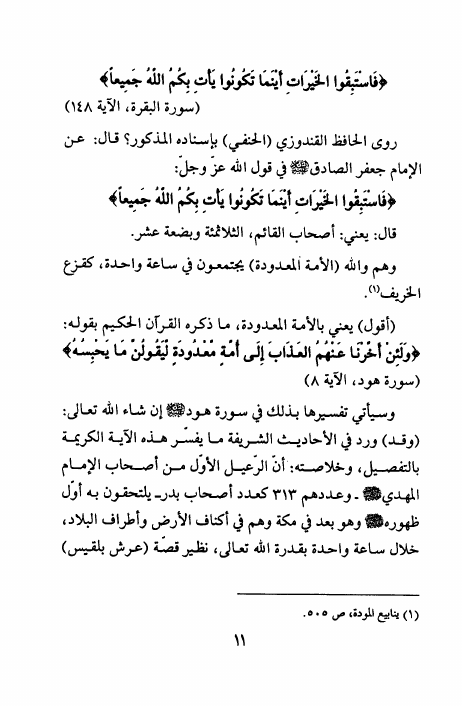 ﴿فَاسْتَبِقُوا الخَيْرَاتِ أَيْنَمَا تَكُونُوا يَأْتِ بِكُمُ اللَّهُ جَمِيعاً﴾
(سورة البقرة، الآية ١٤٨)
روى الحافظ القندوزي (الحنفي) بإسناده المذكور؟ قال: عن
الإمام جعفر الصادق﵇ في قول الله عزّ وجلّ:
﴿فَاسْتَبِقُوا الخَيْرَاتِ أَيْنَمَا تَكُونُوا يَأْتِ بِكُمُ اللَّهُ جَمِيعاً﴾
قال: يعني: أصحاب القائم، الثلاثمئة وبضعة عشر.
وهم والله (الأمة المعدودة) يجتمعون في ساعة واحدة، كقزع
الخريف(١).
(أقول) يعني بالأمة المعدودة، ما ذكره القرآن الحكيم بقوله:
﴿وَلَئِنْ أَخَّرْنَا عَنْهُمُ العَذَابَ إِلَى أُمَّةٍ مَّعْدُودَةٍ لَّيَقُولُنَّ مَا يَحْبِسُهُ﴾
(سورة هود، الآية ٨)
وسيأتي تفسيرها بذلك في سورة هود﵇ إن شاء الله تعالى:
(وقد) ورد في الأحاديث الشريفة ما يفسّر هذه الآية الكريمة
بالتفصيل، وخلاصته: أنّ الرّعيل الأوّل من أصحاب الإمام
المهدي﵇ ـ وعددهم ٣١٣ كعدد أصحاب بدرـ يلتحقون به أوّل
ظهوره﵇ وهو بعد في مكة وهم في أكناف الأرض وأطراف البلاد،
خلال ساعة واحدة بقدرة الله تعالى، نظير قصّة (عرش بلقيس)
(١) ينابيع المودة، ص ٥٠٥.
١١